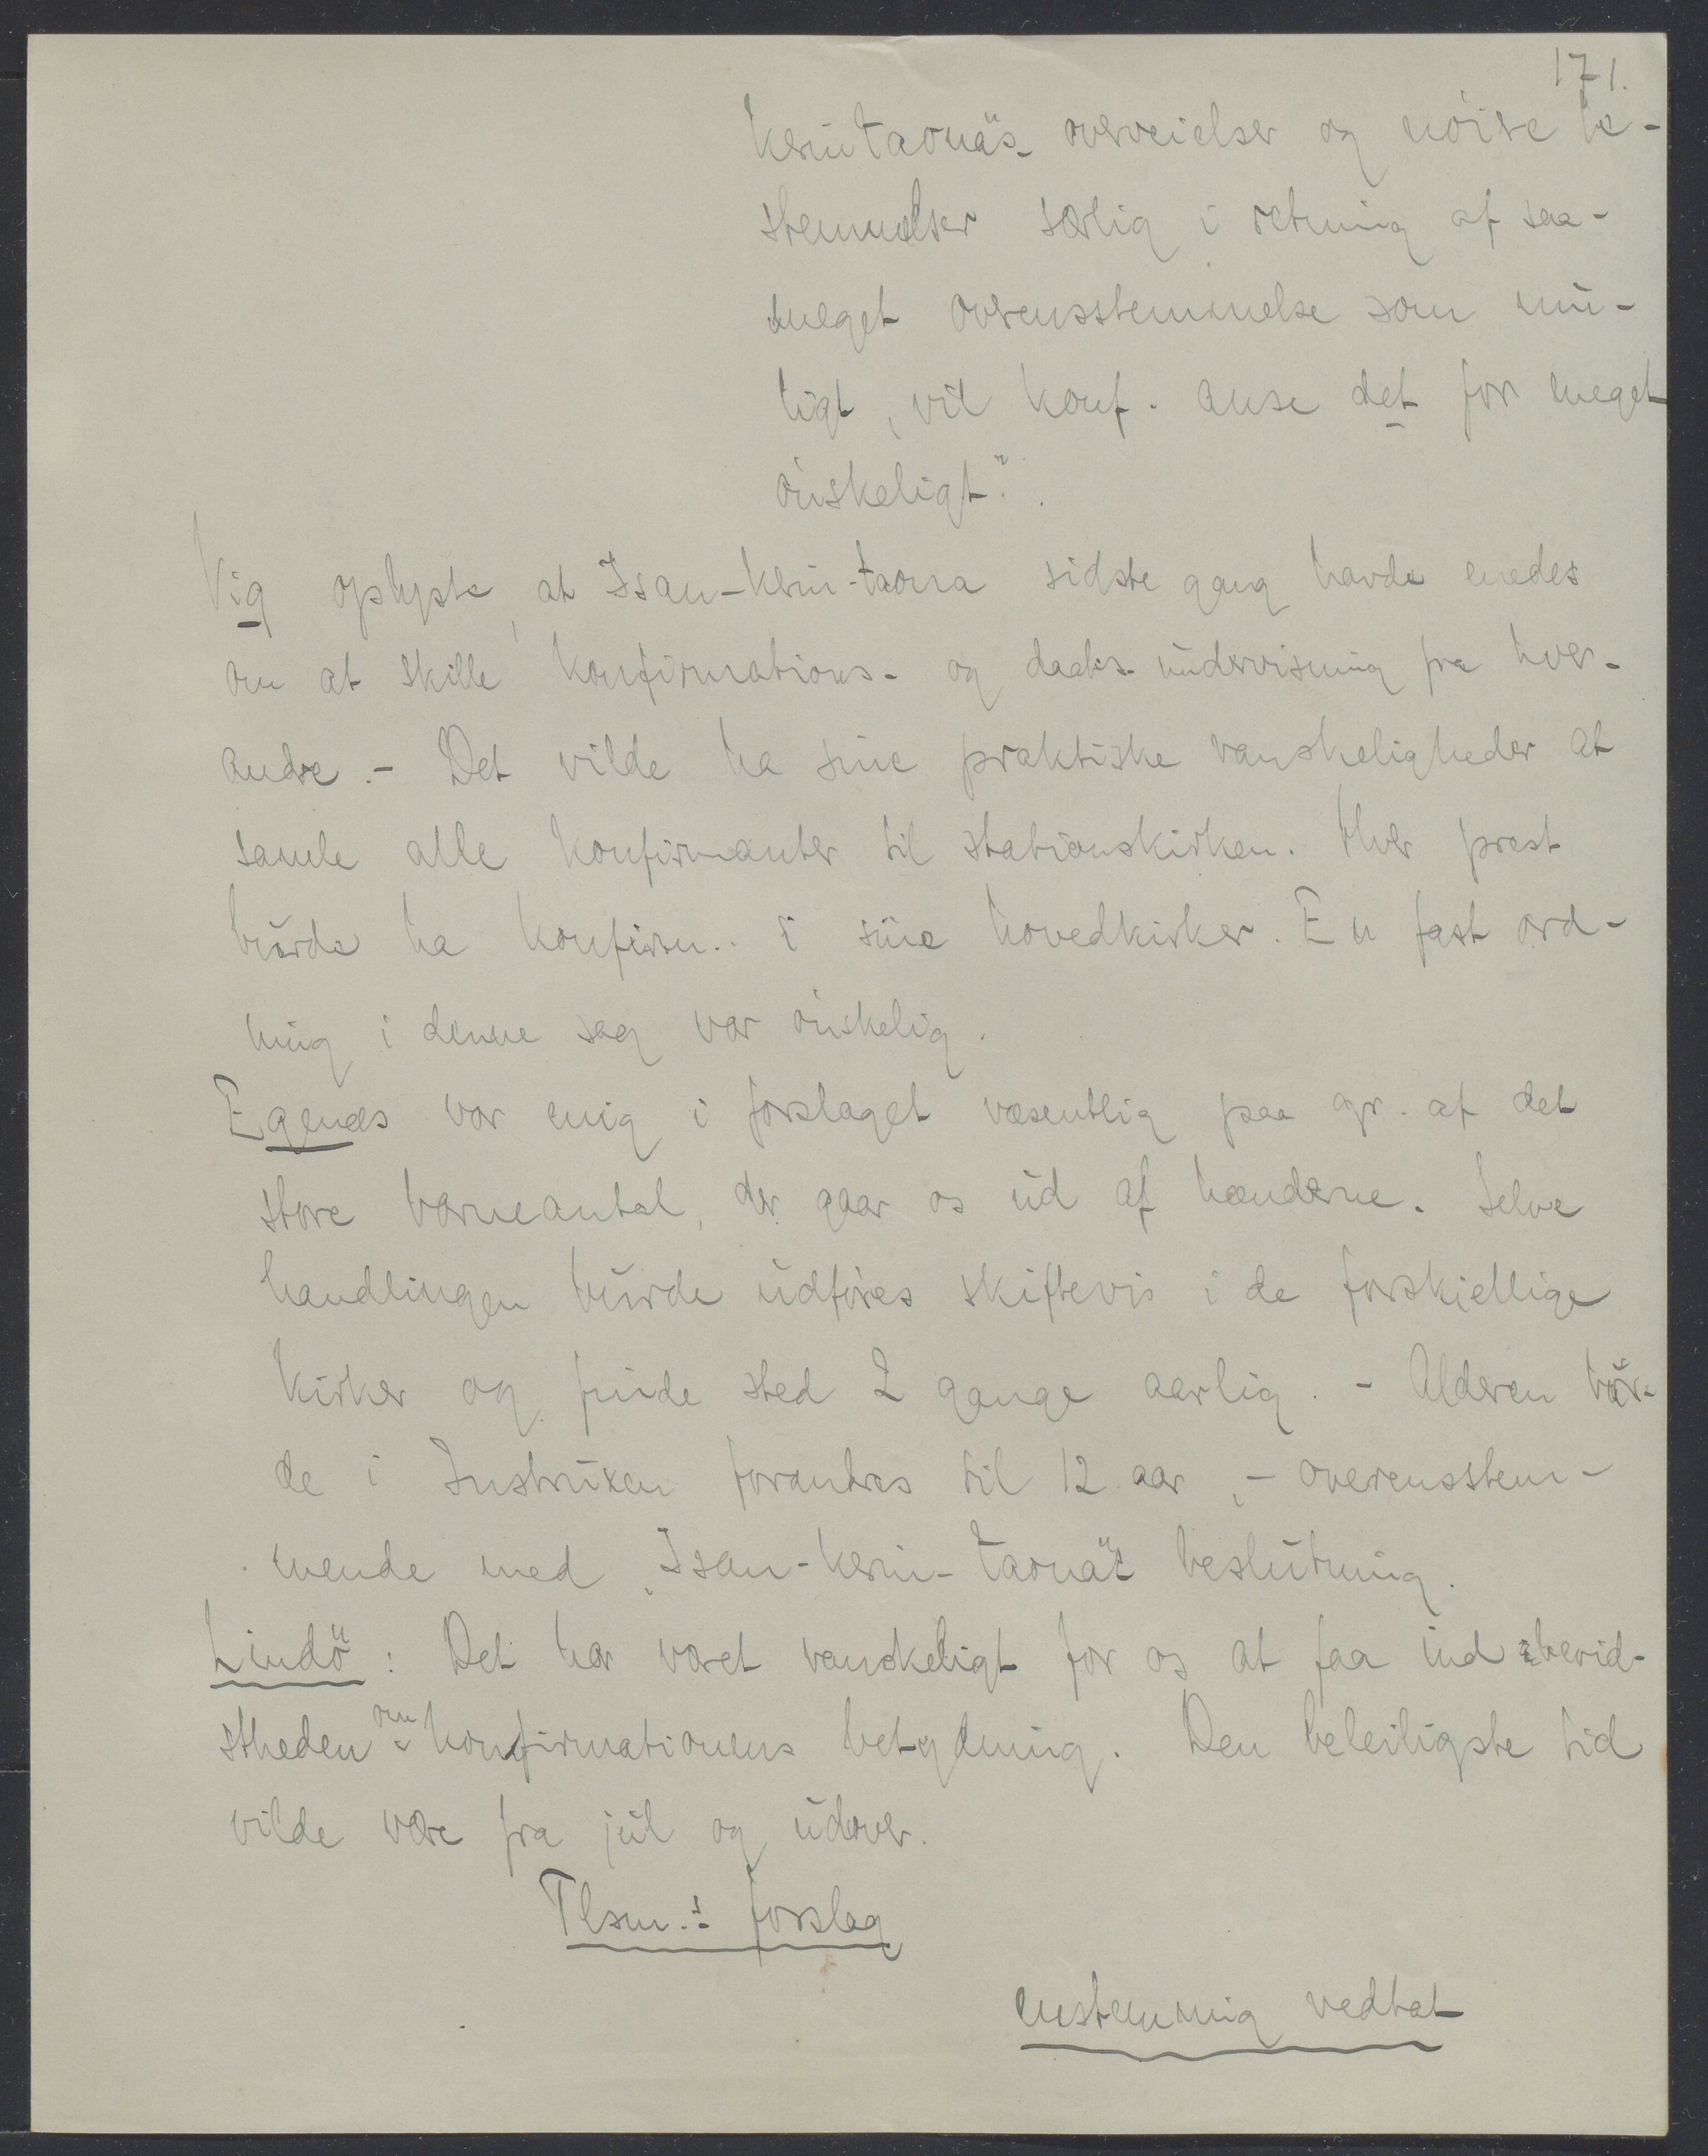 171.
kerintaona's overveielser og nöire be-
stemmelser særlig i retning af saa-
meget overensstemmelse som mu-
ligt, vil konf. anse det for meget
önskeligt".
Vig oplyste, at Isan-kerin-taona sidste gang havde enedes
om at skille konfirmations- og daabs-undervisning fra hver-
andre. - Det vilde ha sine praktiske vanskeligheder at
samle alle konfirmanter til stationskirken. Hver prest
burde ha konfirm.. i sine hovedkirker. En fast ord-
ning i denne sag var önskelig.
Egenæs var enig i forslaget væsentlig paa gr. af det
store barneantal, der gaar os ud af hænderne. Selve
handlingen burde udföres skiftevis i de forskjellige
kirker og finde sted 2 gange aarlig. - Alderen bur-
de i Instruxen forandres til 12 aar, - overensstem-
mende med "Isan-kerin-taona"s beslutning.
Lindö: Det har været vanskeligt for os at faa ind bevid-
stheden om konfirmationens betydning. Den beleiligste tid
vilde være fra jul og udover.
Tlsm.s forslag
enstemmig vedtat